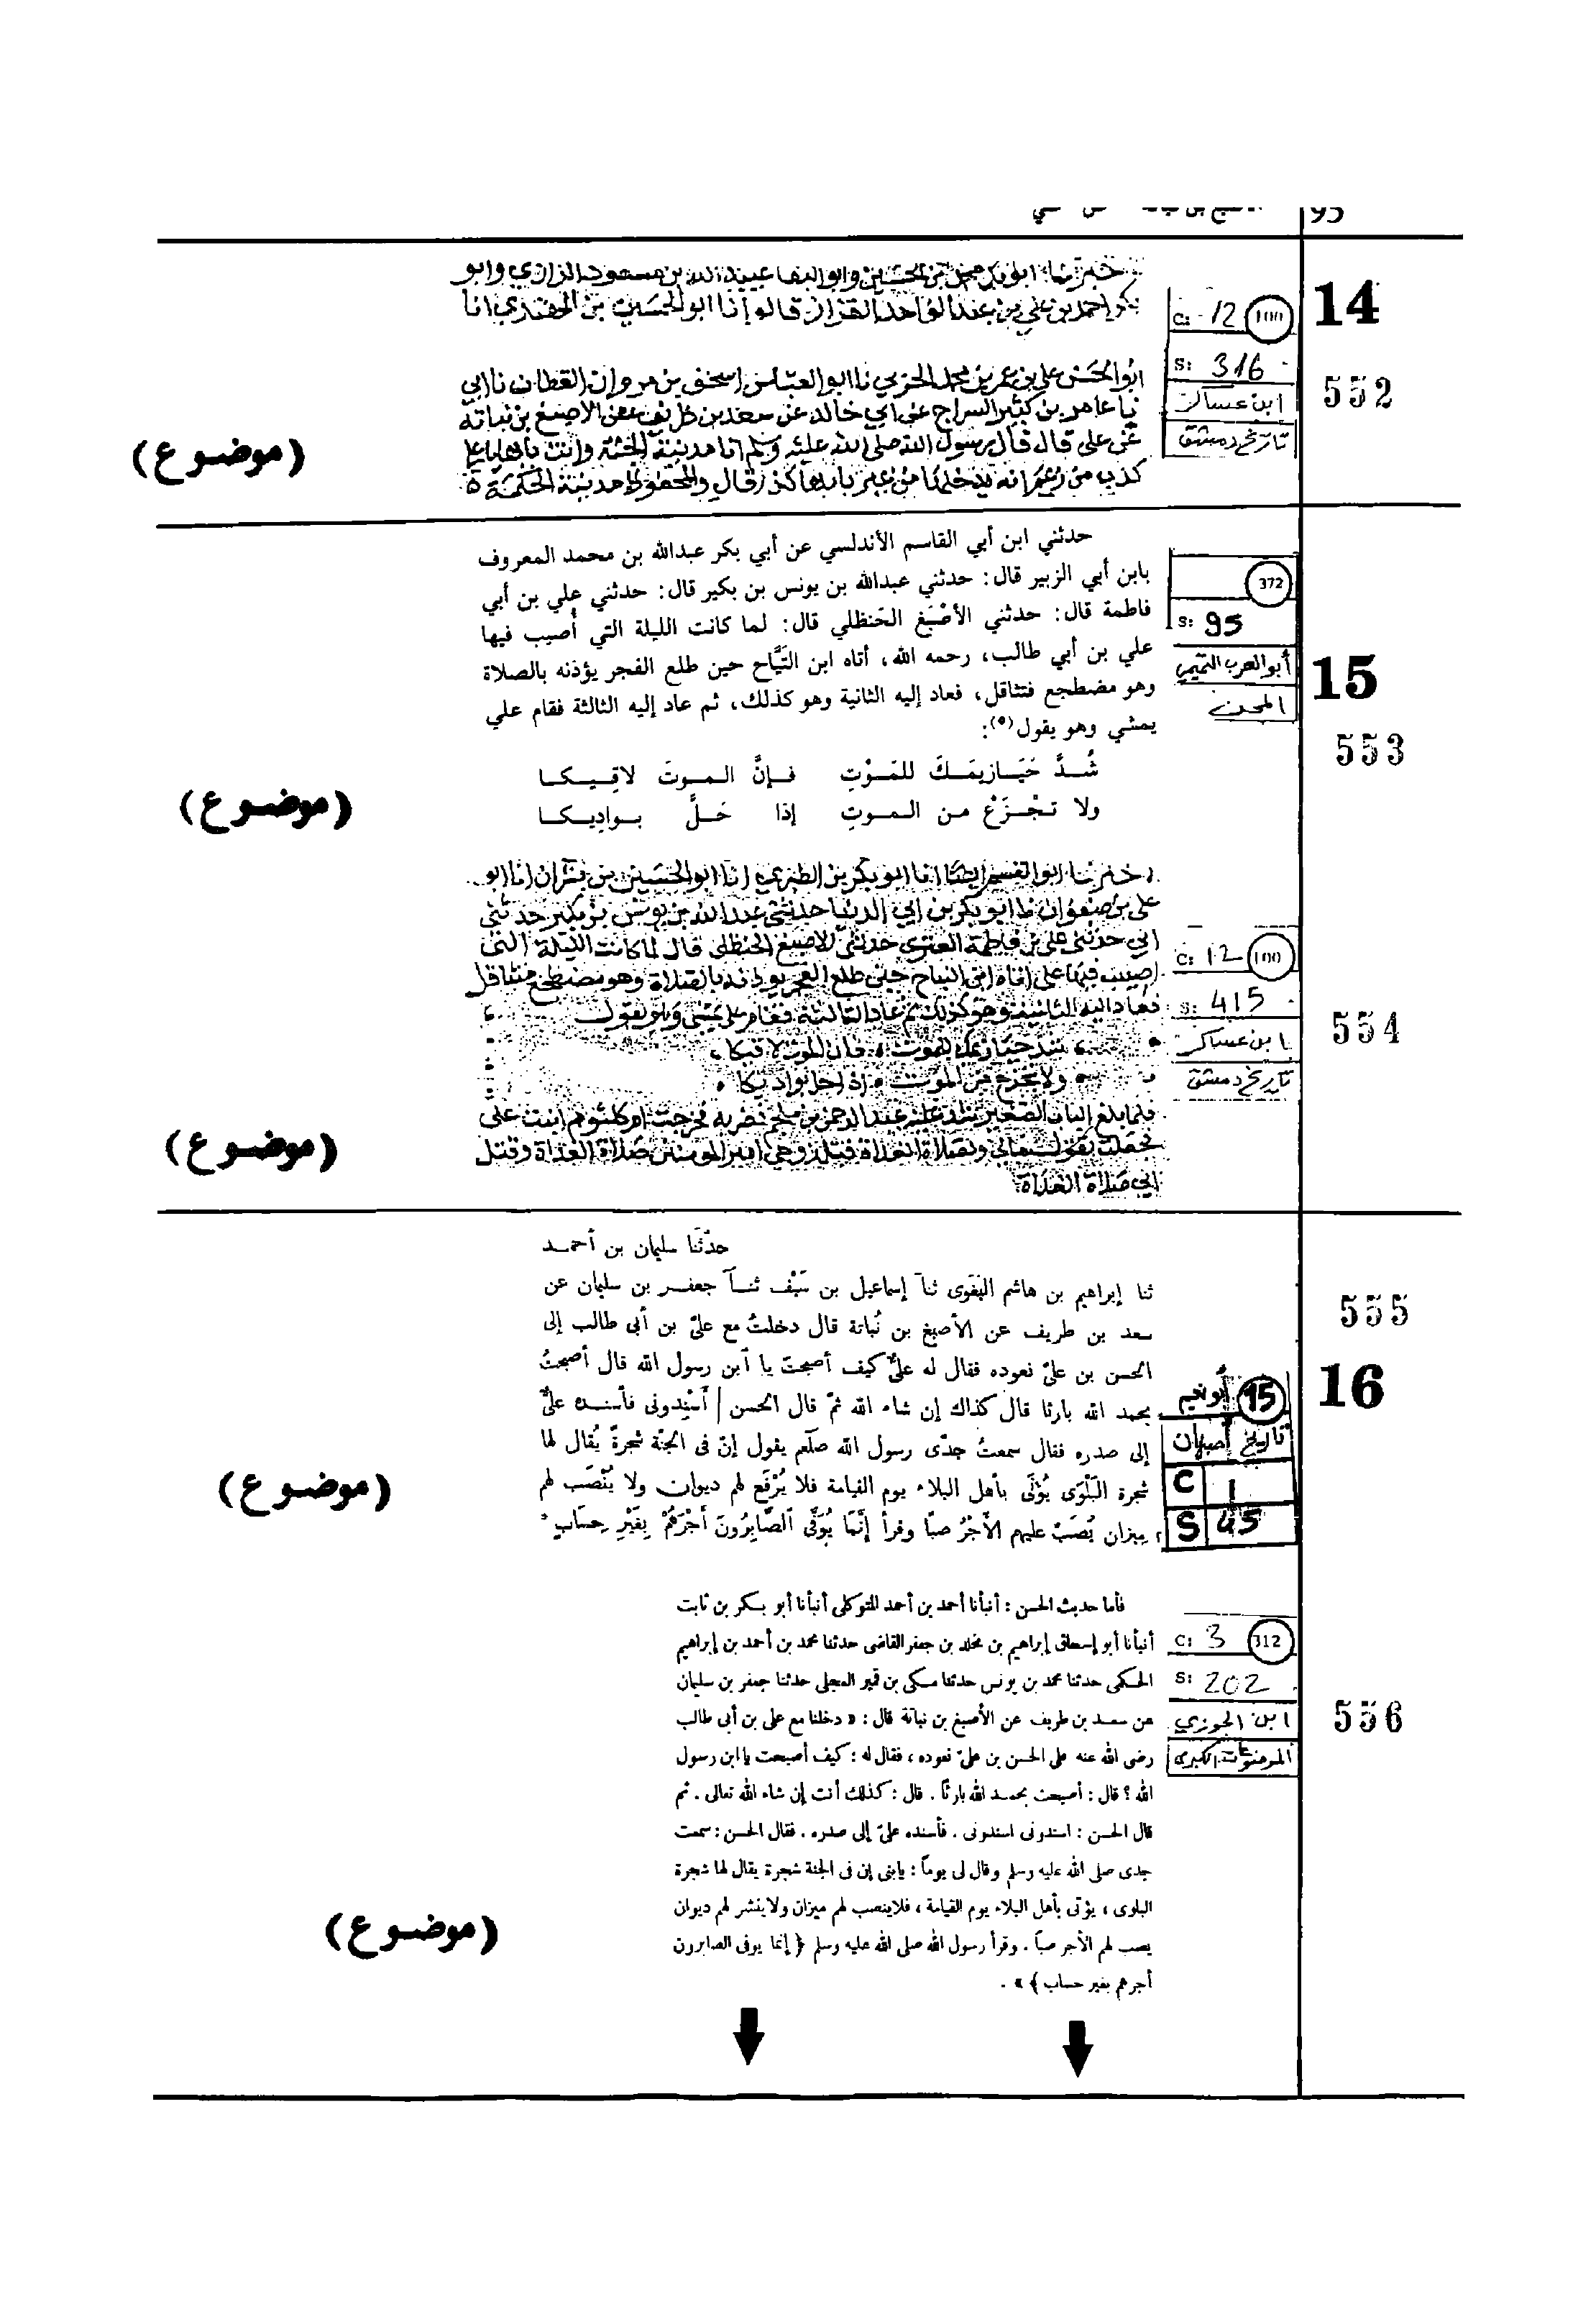 95
14
C: 12 100
S: 316
ابن عساكر
تاريخ دمشق
552
ابو بكر محمد بن الحسين وابو البقا عبيد الله بن مسعود الرازي وابو
بكر احمد بن علي بن عبد الواحد القزاز قالوا انا ابو الحسين بن المهتدي انا
ابو الحسن علي بن عمر بن محمد الحربي نا ابو العباس اسحق بن مروان القطان نا ابي
نا عامر بن كثير السراج عن ابي خالد عن سعد بن طريف عن الاصبغ بن نباتة
عن علي قال قال رسول الله صلى الله عليه وسلم انا مدينة الجنة وانت بابها يا علي
كذب من زعم انه يدخلها من غير بابها كذا قال والمحفوظ مدينة الحكمة
(موضوع)
372
S: 95
أبو العرب التميمي
المحن
15
553
حدثني ابن أبي القاسم الأندلسي عن أبي بكر عبدالله بن محمد المعروف
بابن أبي الزبير قال: حدثني عبدالله بن يونس بن بكير قال: حدثني علي بن أبي
فاطمة قال: حدثني الأصْبَغ الحَنظلي قال: لما كانت الليلة التي أُصيب فيها
علي بن أبي طالب، رحمه الله، أتاه ابن التَيَّاح حين طلع الفجر يؤذنه بالصلاة
وهو مضطجع فتثاقل، فعاد إليه الثانية وهو كذلك، ثم عاد إليه الثالثة فقام علي
يمشي وهو يقول(٥):
شُـدَّ حَيَـازيمَـكَ للمَـوْتِ فـإنَّ المـوتَ لاقِـيـكـا
ولا تـجْـزَعْ مـن المـوتِ إذا حَـلَّ بـوادِيـكـا
(موضوع)
C: 12 100
S: 415
ابن عساكر
تاريخ دمشق
554
ابو القسم ايضا انا ابو بكر بن الطبري انا ابو الحسين بن بشران انا ابو
علي بن صفوان نا ابو بكر بن ابي الدنيا حدثني عبد الله بن يونس بن بكير حدثني
ابي حدثني علي بن فاطمة العنزي حدثني الاصبغ الحنظلي قال لما كانت الليلة التي
اصيب فيها علي اتاه ابن النباح حين طلع الفجر يوذنه بالصلاة وهو مضطجع متثاقل
فعاد اليه الثانية وهو كذلك ثم عاد الثالثة فقام علي يمشي وهو يقول
شد حيازيمك للموت فان الموت لاقيكا
ولا تجزع من الموت اذا حل بواديكا
فلما بلغ الباب الصغير شد عليه عبد الرحمن بن ملجم فضربه فخرجت ام كلثوم ابنت علي
فجعلت تقول مالي ولصلاة الغداة قتل زوجي امير المومنين صلاة الغداة وقتل
ابي صلاة الغداة
(موضوع)
555
16
95 أبو نعيم
تاريخ أصبهان
C 1
S 45
حدّثنا سليمان بن أحمـد
ثنا إبراهيم بن هاشم البغوى ثنا إسماعيل بن سَيْف ثنـا جعفـر بن سليمان عن
سعد بن طريف عن الأصبغ بن نُباتة قال دخلتُ مع علىّ بن أبى طالب إلى
الحسن بن علىّ نعوده فقال له علىّ كيف أصبحتَ يا آبن رسول الله قال أصبحتُ
بحمد الله بارئا قال كذاك إن شاء الله ثمّ قال الحسن | أَسْنِدونى فأسنـده علىّ
إلى صدره فقال سمعتُ جدّى رسول الله صلّعم يقول إنّ فى الجنّة شجرةً يُقال لها
شجرة البَلْوَى يُؤتَى بأهل البلاء يوم القيامة فلا يُرْفَع لهم ديوان ولا يُنْصَب لهم
ميزان يُصَبّ عليهم الأجْرُ صبًّا وقرأ إِنَّمَا يُوَفَّى ٱلصَّابِرُونَ أَجْرَهُمْ بِغَيْرِ حِسَابٍ
(موضوع)
C: 3 312
S: 202
ابن الجوزي
الموضوعات الكبرى
556
فأما حديث الحسن : أنبأنا أحمد بن أحمد المتوكلى أنبأنا أبو بـكر بن ثابت
أنبأنا أبو إسحاق إبراهيم بن مخلد بن جعفر القاضى حدثنا محمد بن أحمد بن إبراهيم
الحكمى حدثنا محمد بن يونس حدثنا مـكى بن قمير العجلى حدثنا جعفر بن سليمان
عن سعـد بن طريف عن الأصبغ بن نباتة قال : « دخلنا مع على بن أبى طالب
رضى الله عنه على الحسن بن علىّ نعوده ، فقال له : كيف أصبحت يا ابن رسول
الله ؟ قال : أصبحت بحمـد الله بارئاً . قال : كذلك أنت إن شاء الله تعالى . ثم
قال الحسـن : اسندونى اسندونى . فأسنده علىّ إلى صدره . فقال الحسـن : سمعت
جدى صلى الله عليه وسلم وقال لى يوماً : يابنى إن فى الجنة شجرة يقال لها شجرة
البلوى ، يؤتى بأهل البلاء يوم القيامة ، فلاينصب لهم ميزان ولاينشر لهم ديوان
يصب لهم الأجر صباً . وقرأ رسول الله صلى الله عليه وسلم { إنما يوفى الصابرون
أجرهم بغير حساب } » .
(موضوع)